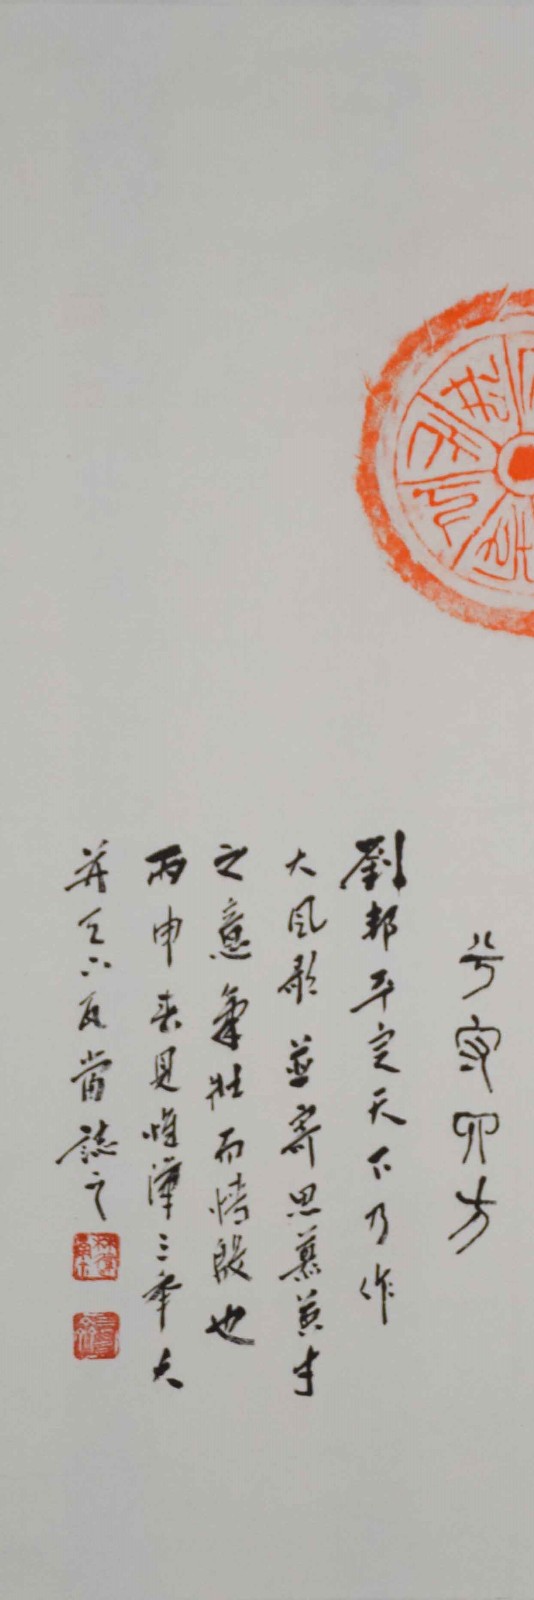 兮守四方
劉邦平定天下乃作
大風歌並寄思慕英才
之意氣壯而情殷也
丙申春見惟漢三年大
并天下瓦當誌之